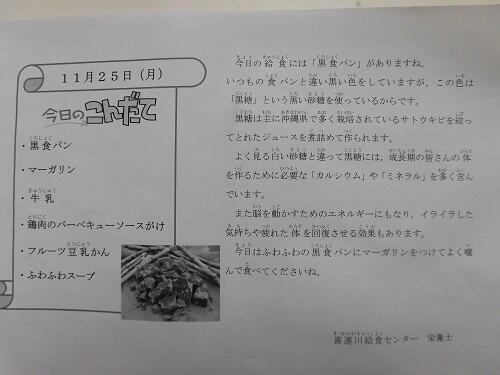 11月25日(月)
今日のこんだて
・黒食パン
・マーガリン
・牛乳
・鶏肉のバーベキューソースがけ
・フルーツ豆乳かん
・ふわふわスープ
今日の給食には「黒食パン」がありますね。
いつもの食パンと違い黒い色をしていますが、この色は
「黒糖」という黒い砂糖を使っているからです。
黒糖は主に沖縄県で多く栽培されているサトウキビを絞っ
てとれたジュースを煮詰めて作られます。
よく見る白い砂糖と違って黒糖には、成長期の皆さんの体
を作るために必要な「カルシウム」や「ミネラル」を多く含ん
でいます。
また脳を動かすためのエネルギーにもなり、イライラした
気持ちや疲れた体を回復させる効果もあります。
今日はふわふわの黒食パンにマーガリンをつけてよく噛
んで食べてくださいね。
喜連川給食センター 栄養士